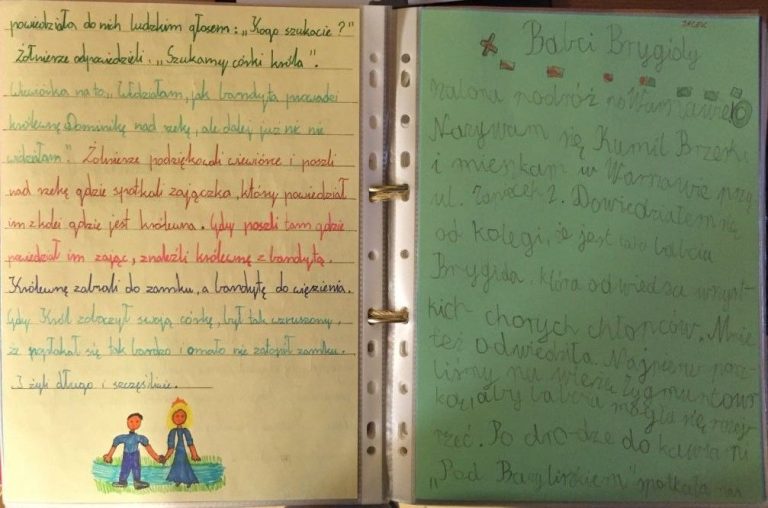 powiedziała do nich ludzkim głosem: „Kogo szukacie?"
Żołnierze odpowiedzieli: „Szukamy córki króla".
Wiewiórka na to „Widziałam, jak bandyta prowadzi
królewnę Dominikę nad rzekę, ale dalej już nic nie
widziałam." Żołnierze podziękowali wiewiórce i poszli
nad rzekę gdzie spotkali zajączka, który powiedział
im z kolei gdzie jest królewna. Gdy poszli tam gdzie
powiedział im zając, znaleźli królewnę z bandytą.
Królewnę zabrali do zamku, a bandytę do więzienia.
Gdy Król zobaczył swoją córkę, był tak wzruszony,
że popłakał się tak bardzo i omało nie zatopił zamku.
I żyli długo i szczęśliwie.
Babci Brygidy
szalona podróż po Warszawie
Nazywam się Kamil Brzeski
i mieszkam w Warszawie przy
ul. 2. Dowiedziałem się
od kolegi, że jest taka babcia
Brygida, która odwiedza wszyst-
kich chorych chłopców. Mnie
też odwiedziła. Najpierw posz-
liśmy na wieżę Zygmuntows-
ką, żeby babcia mogła się rozej-
rzeć. Po drodze do kawiarni
„Pod Bazyliszkiem" spotkała nas